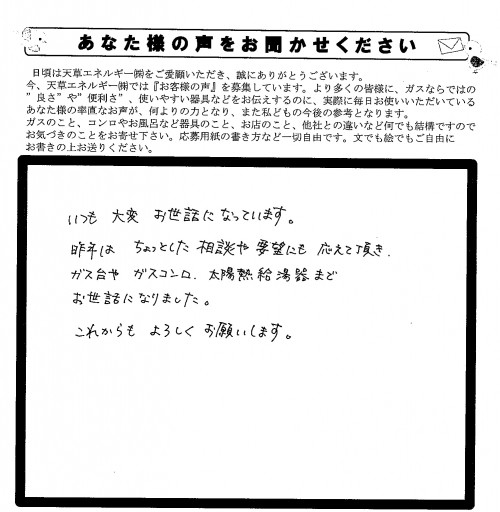 あなた様の声をお聞かせください
日頃は天草エネルギー㈱をご愛顧いただき、誠にありがとうございます。
今、天草エネルギー㈱では『お客様の声』を募集しています。より多くの皆様に、ガスならではの
”良さ”や”便利さ”、使いやすい器具などをお伝えするのに、実際に毎日お使いいただいている
あなた様の率直なお声が、何よりの力となり、また私どもの今後の参考となります。
ガスのこと、コンロやお風呂など器具のこと、お店のこと、他社との違いなど何でも結構ですので
お気づきのことをお寄せ下さい。応募用紙の書き方など一切自由です。文でも絵でもご自由に
お書きの上お送りください。
いつも 大変 お世話になっています。
昨年は ちょっとした 相談や 要望にも 応えて頂き、
ガス台や ガスコンロ、太陽熱給湯器まで
お世話になりました。
これからも よろしく お願いします。